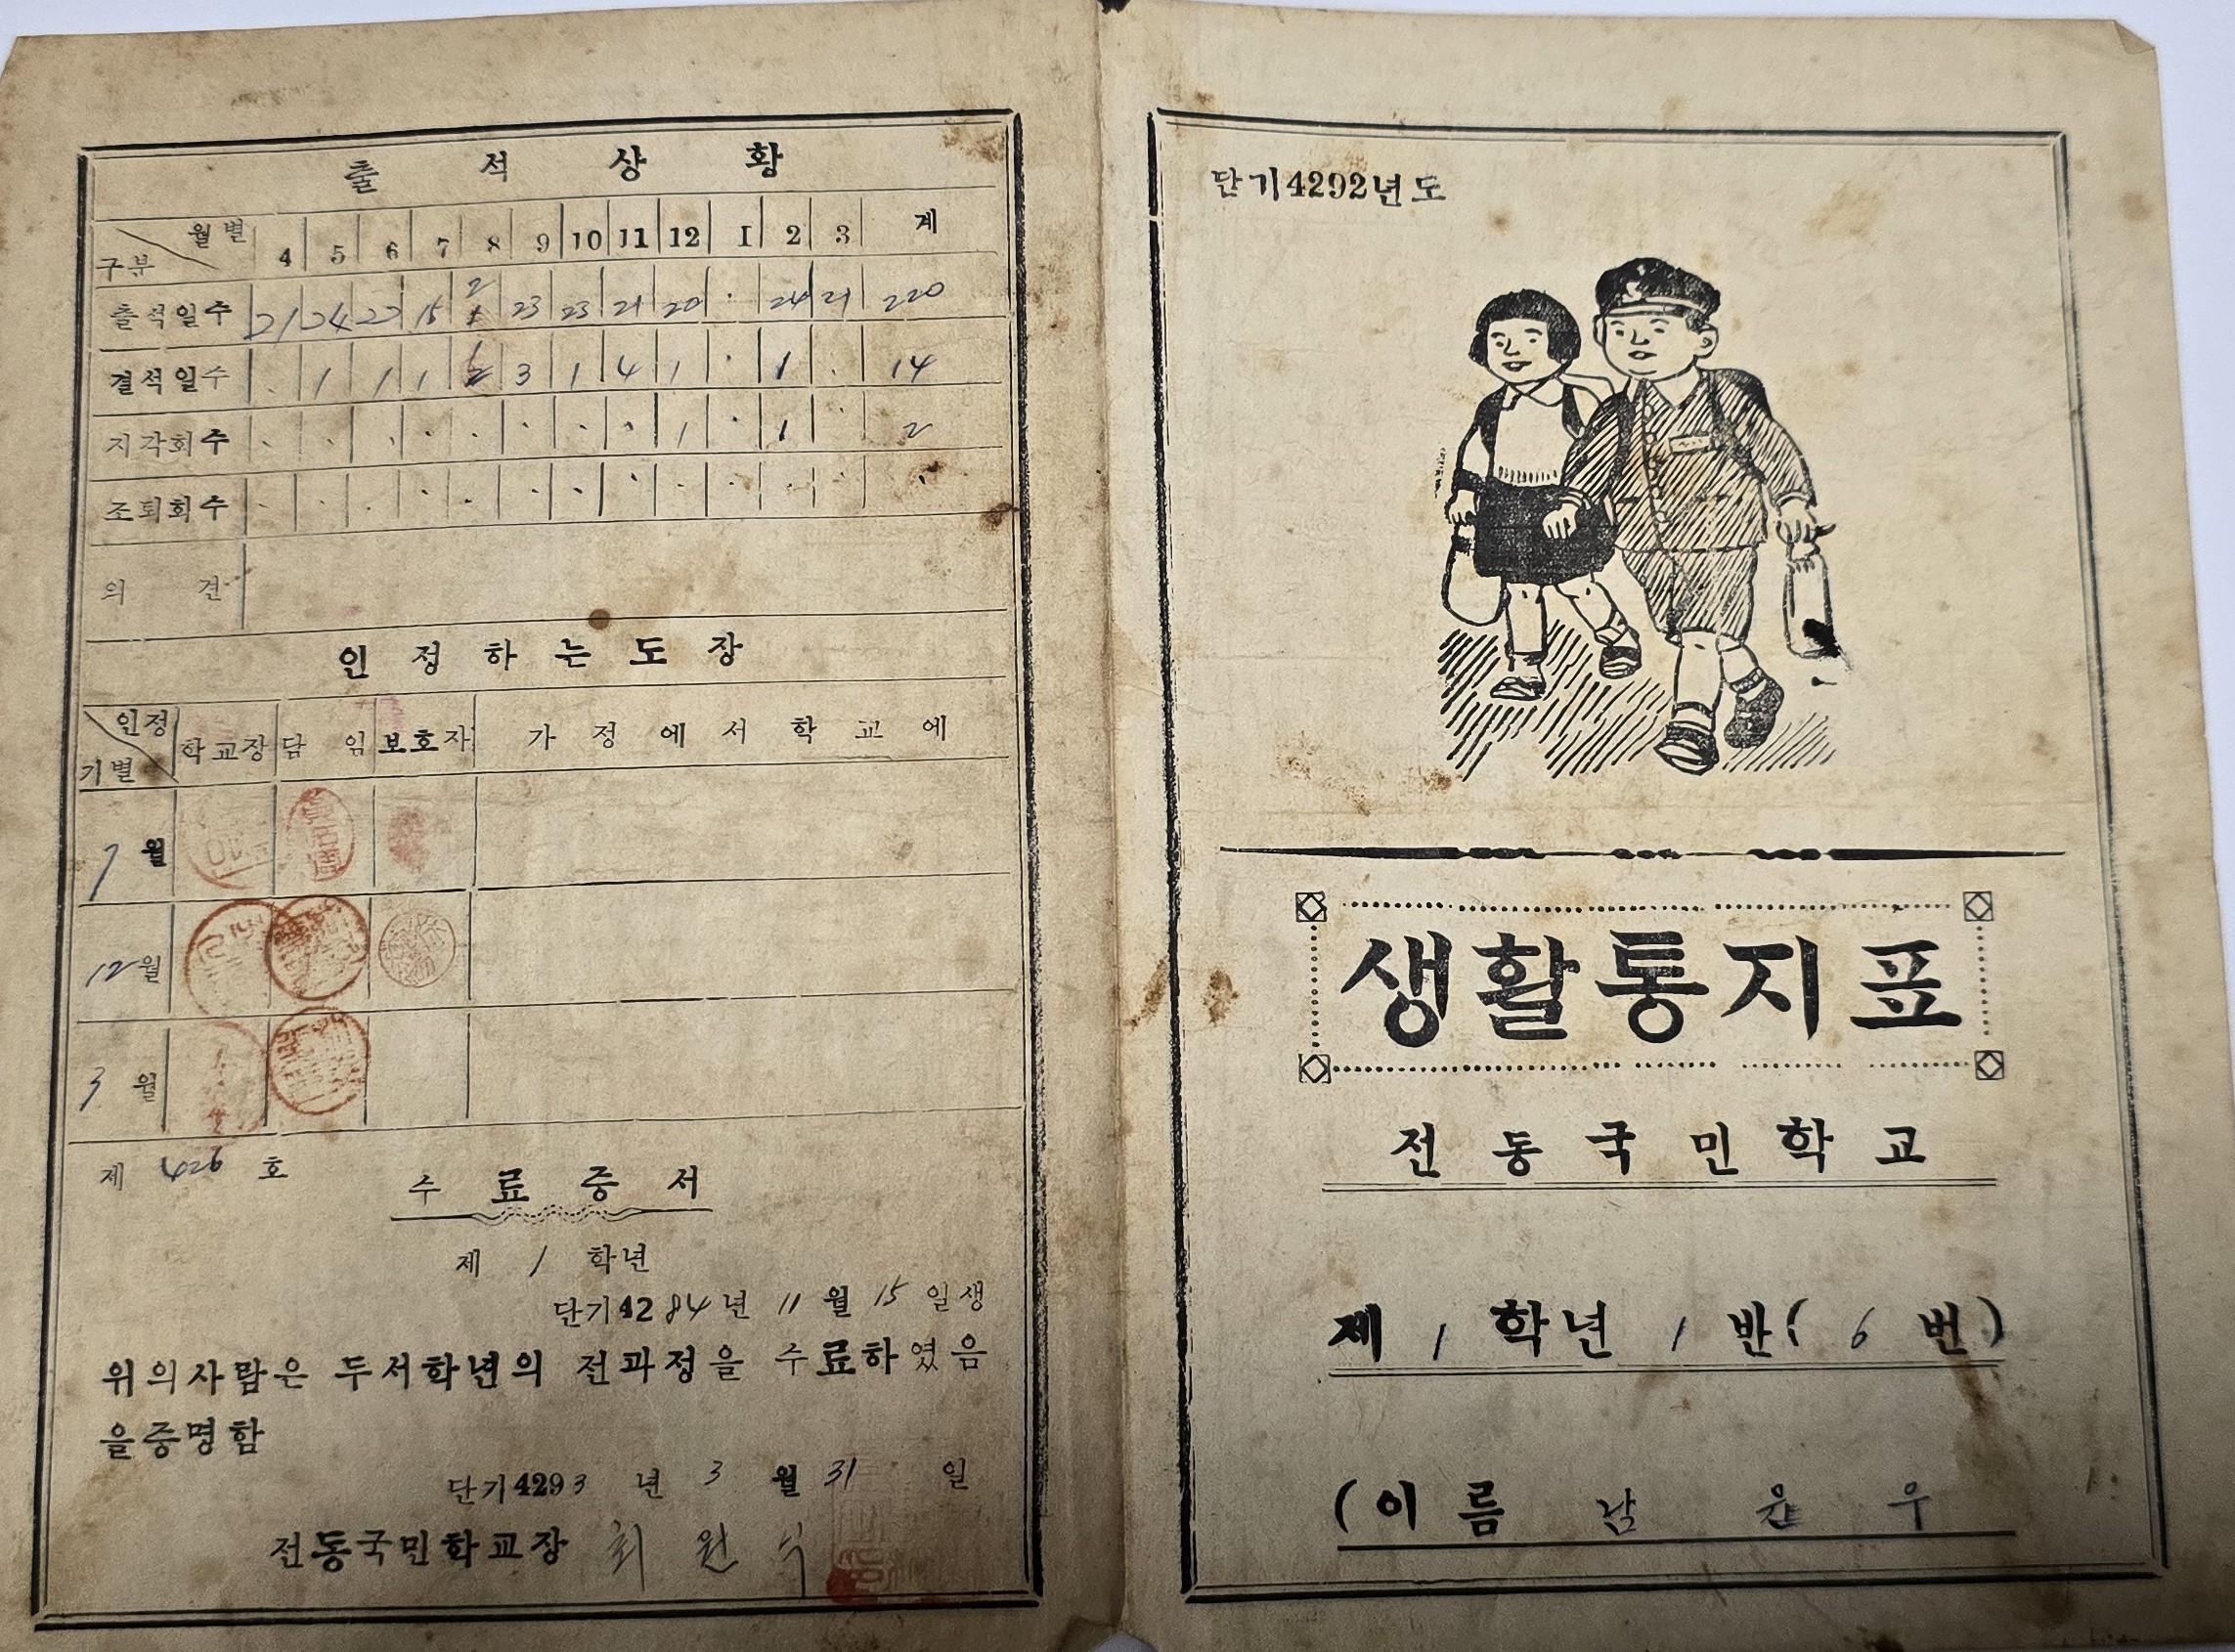 출석상황
월별 구분 4 5 6 7 8 9 10 11 12 1 2 3 계
출석일수 21 24 22 15 2 23 23 21 20 · 24 21 220
결석일수 . 1 1 1 3 1 4 1 · 1 . 14
지각회수 · · · · · · · · 1 · 1 2
조퇴회수 · · · · · · · · · · · · ·
의견
인정하는도장
인정 기별 학교장 담임 보호자 가정에서학교에
7월
12월
3월
제 426 호
수료증서
제 1 학년
단기4284년 11월 15일생
위의사람은 두서학년의 전과정을 수료하였음
을증명함
단기4293년 3월 31일
전동국민학교장 최원식
단기4292년도
생활통지표
전동국민학교
제 1 학년 1 반( 6 번)
(이름 남 윤 우